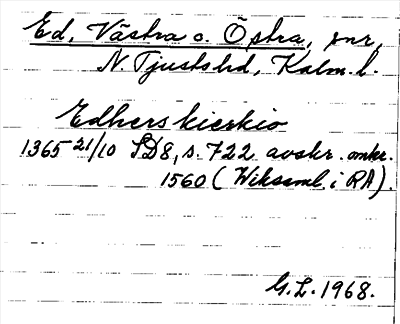 Ed, Västra o. Östra, snr,
N. Tjusts hd, Kalm. l.
Edherskierkio
1365 21/10 SD8, s. 722 avskr. omkr.
1560 (Wikssaml. i RA).
G.L. 1968.